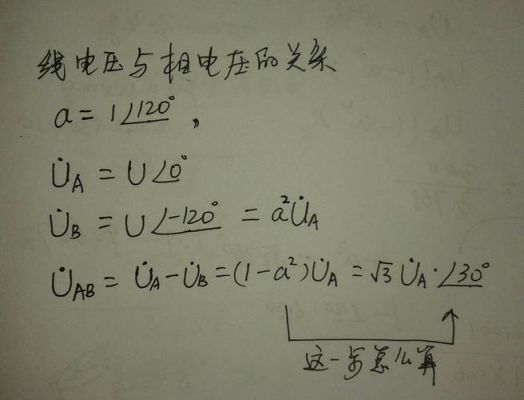 线电压与相电压的关系
a = 1∠120°,
U̇_A = U∠0°
U̇_B = U∠-120° = a²U̇_A
U̇_AB = U̇_A - U̇_B = (1-a²)U̇_A = √3 U̇_A·∠30°
这一步怎么算